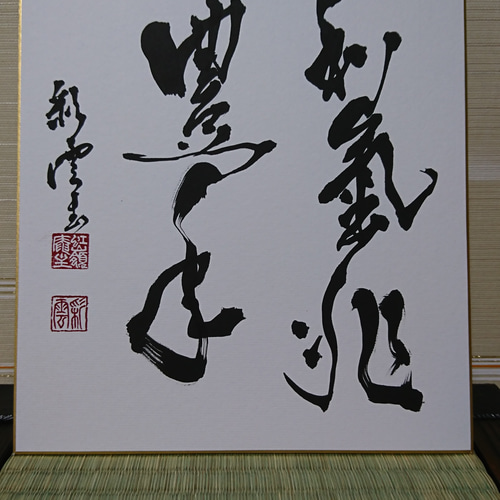 和氣兆
豊年
彩雲書
彩雲